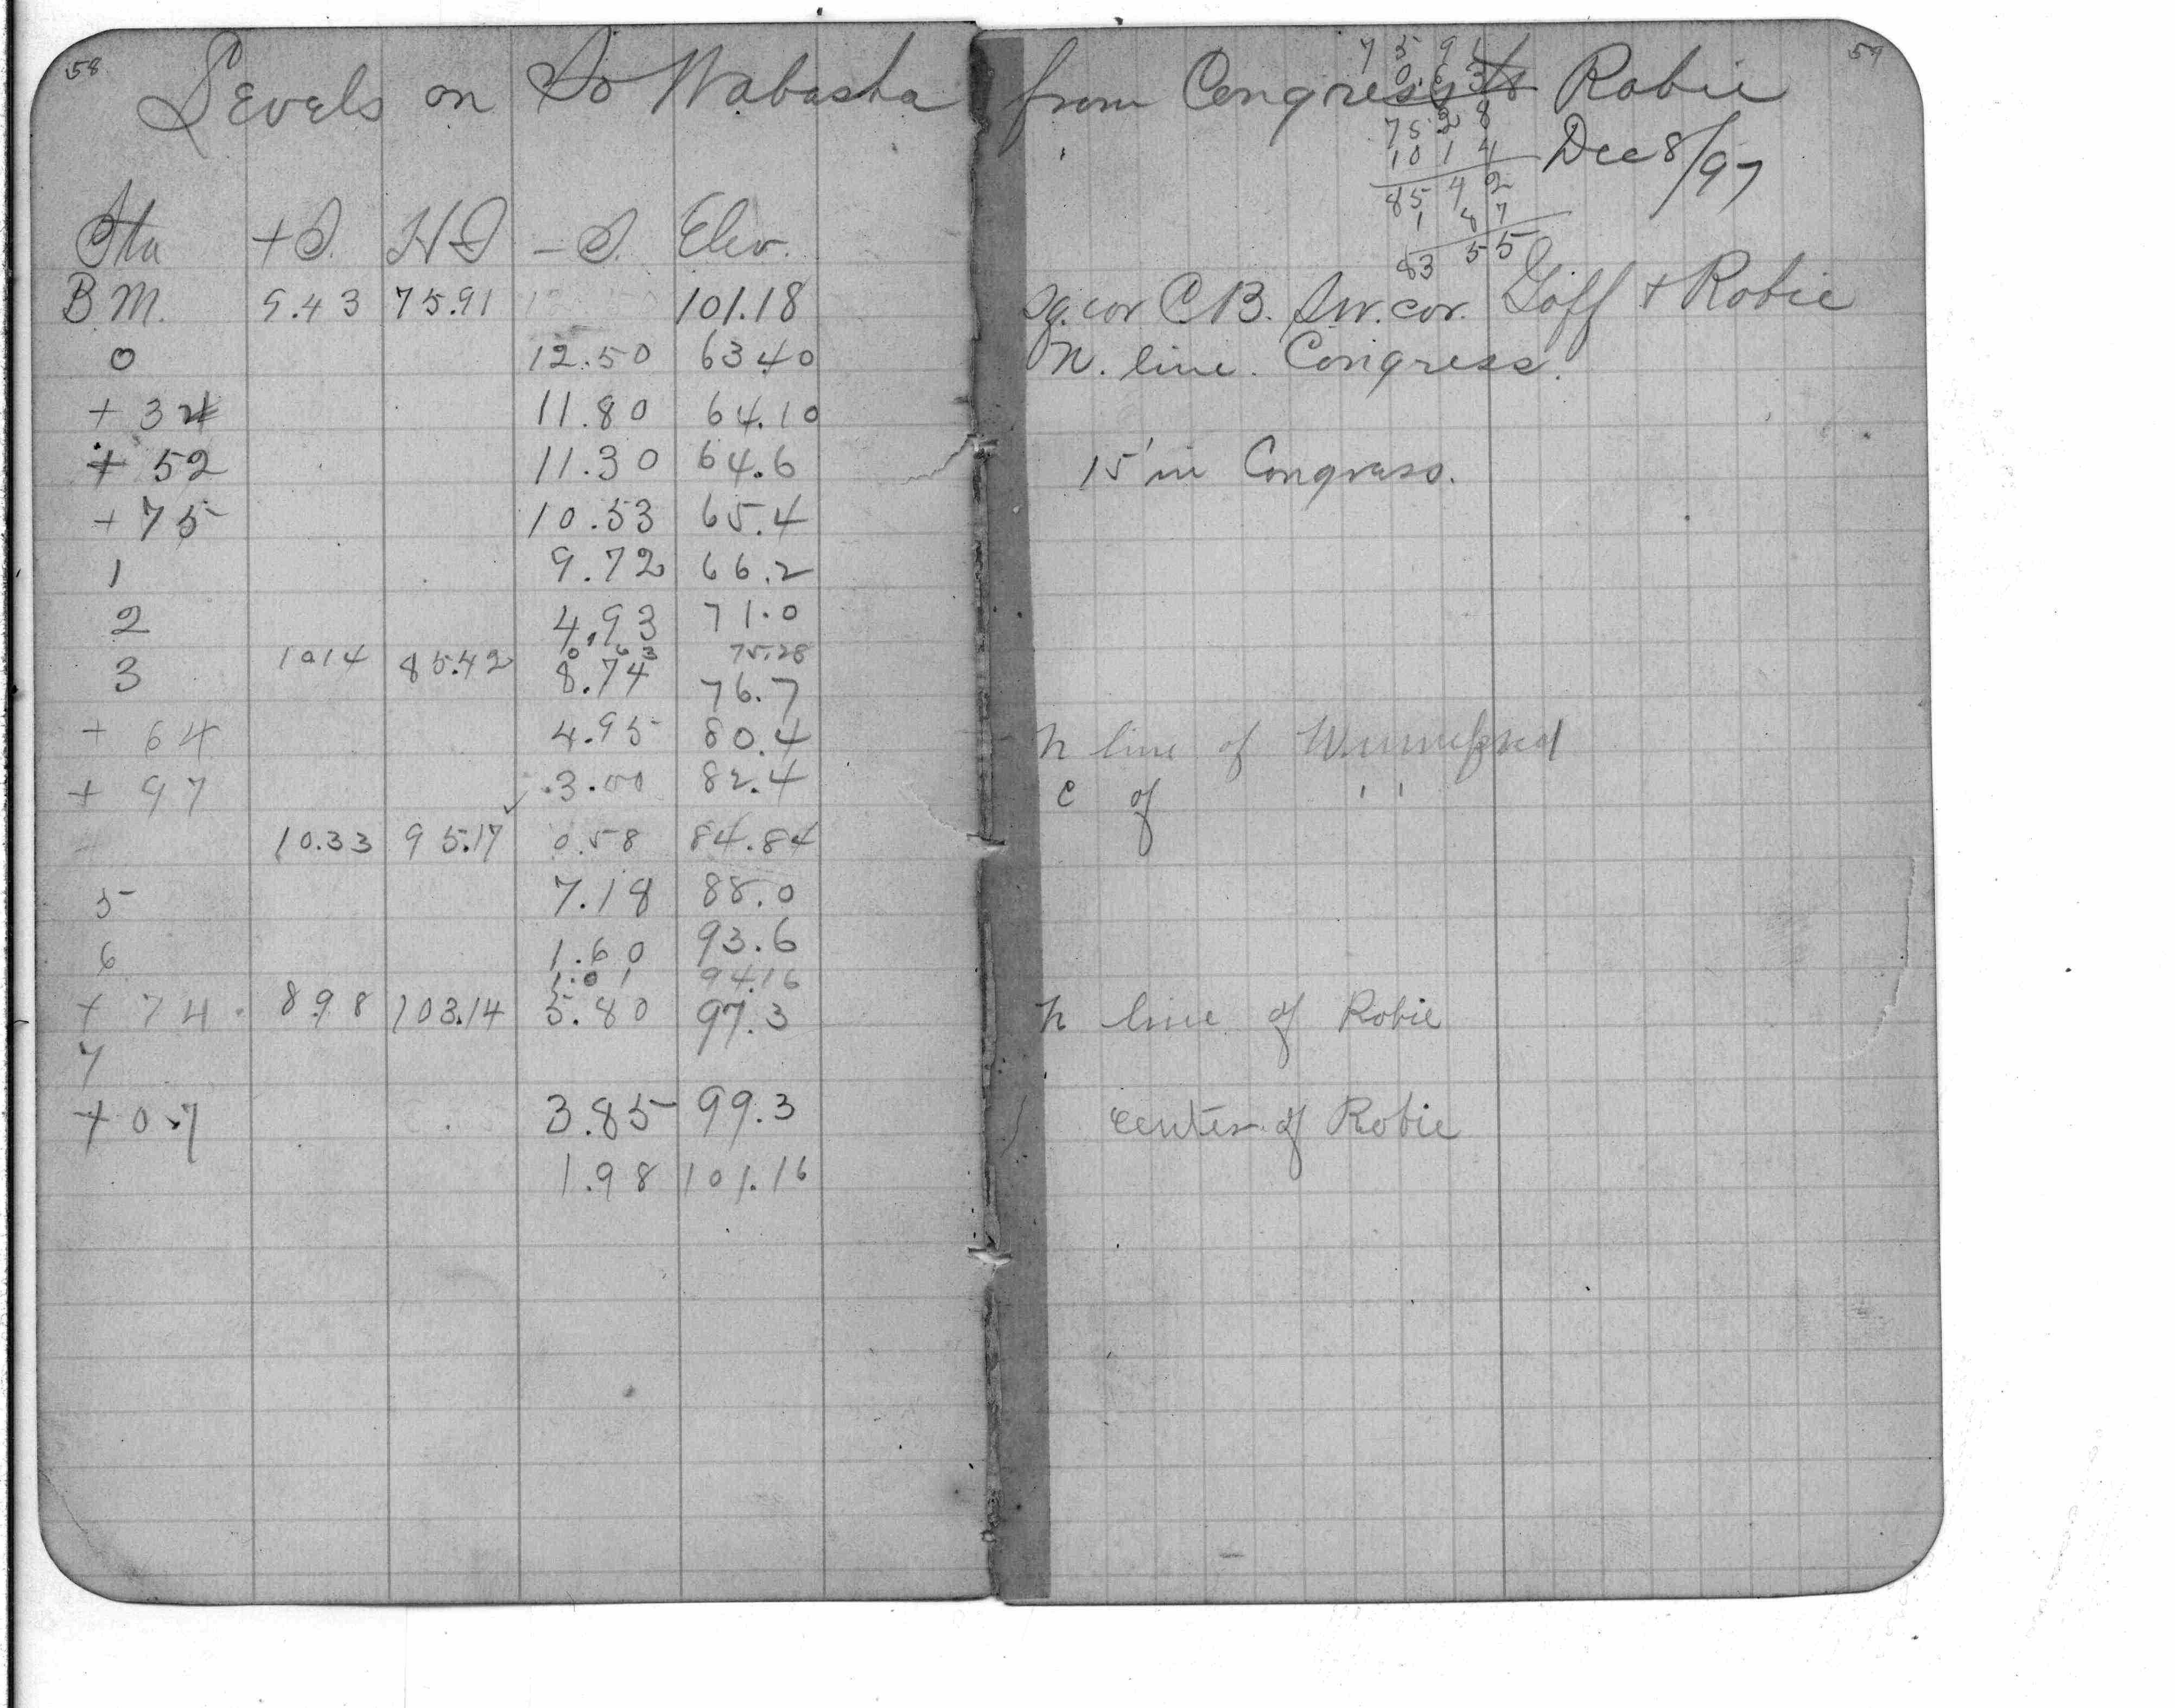 58
Levels on So Wabasha
Sta +S. HI -S. Elev.
B.M. 9.43 75.91 101.18
0 12.50 63.40
+ 32 11.80 64.10
+ 52 11.30 64.6
+ 75 10.53 65.4
1 9.72 66.2
2 4.93 71.0
0 63 75.28
3 10 14 85.42 8.74 76.7
+ 64 4.95 80.4
+ 97 3.00 82.4
10.33 95.17 0.58 84.84
5 7.18 88.0
6 1.60 93.6
1.01 94.16
+ 74 8.98 103.14 5.80 97.3
7
+ 07 3.85 99.3
1.98 101.16
59
7 5 9 1
0 6 3
from Congress to Robie
75 2 8
10 1 4
Dec 8/97
85 4 2
1 8 7
83 55
Sq. cor C.B. S.W. cor. Goff + Robie
N. line. Congress.
15' in Congress.
N line of
C of " "
N line of Robie
center of Robie